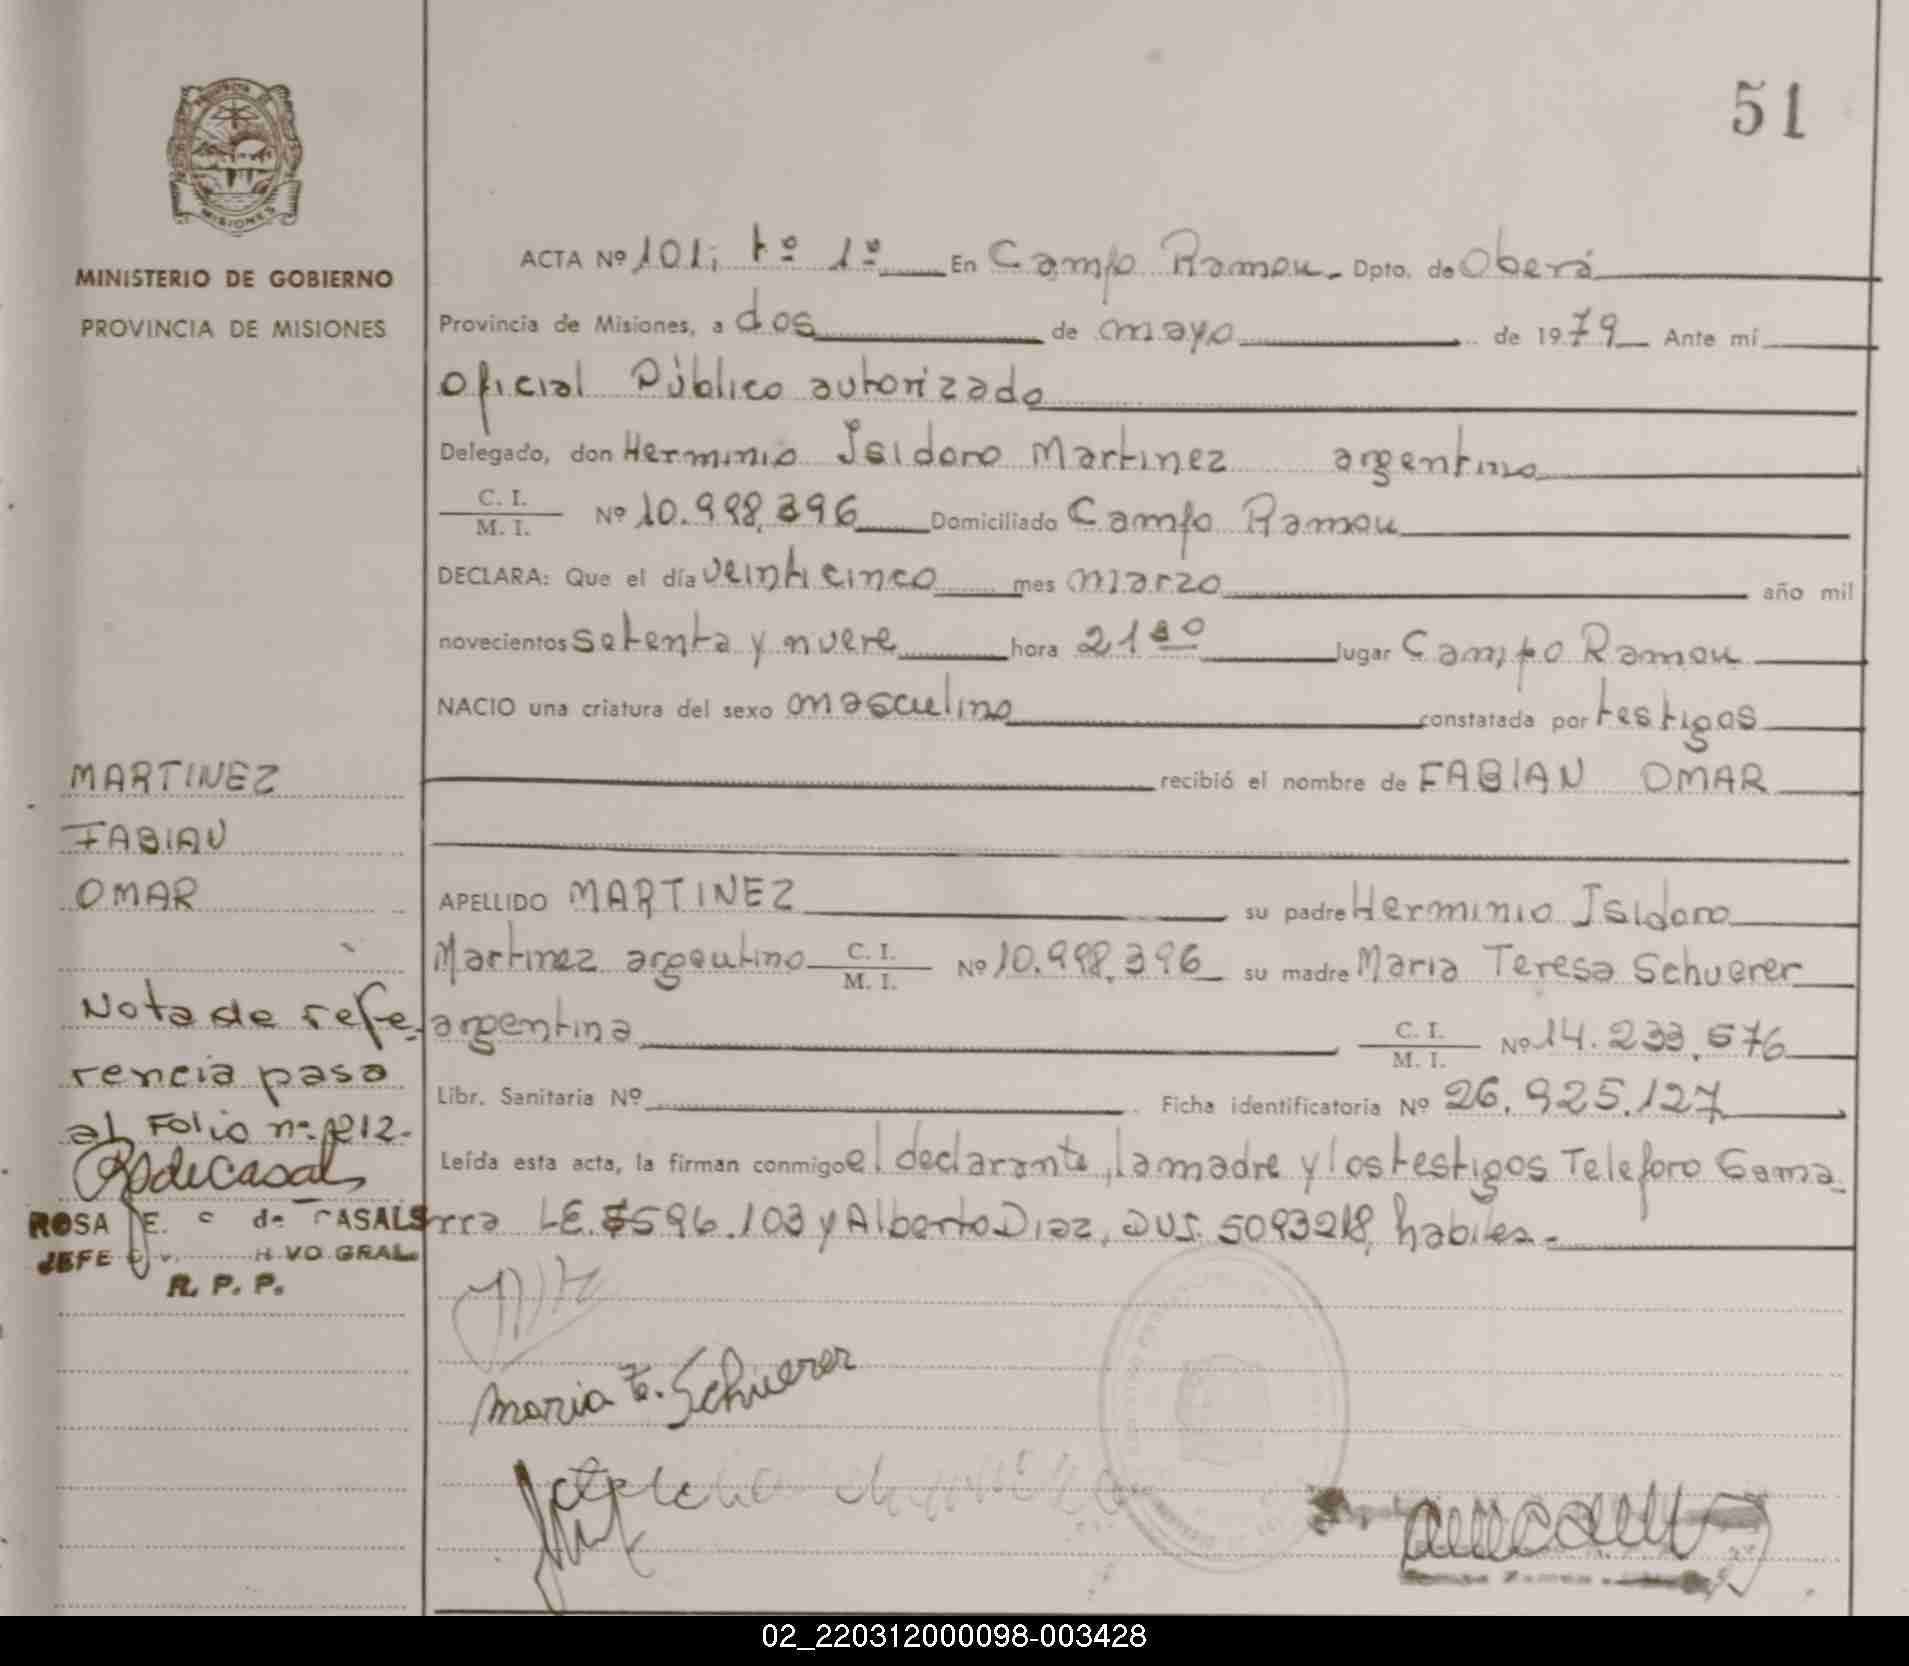 51
MISIONES
MINISTERIO DE GOBIERNO
PROVINCIA DE MISIONES
ACTA Nº 101; tº 1º En Campo Ramon Dpto. de Oberá
Provincia de Misiones, a dos de mayo de 1979 Ante mí
Oficial Público autorizado
Delegado, don Herminio Isidoro Martinez argentino
C. I.
M. I. Nº 10.998.396 Domiciliado Campo Ramon
DECLARA: Que el día veinticinco mes marzo año mil
novecientos setenta y nueve hora 21 lugar Campo Ramon
NACIO una criatura del sexo masculino constatada por testigos
recibió el nombre de FABIAN OMAR
MARTINEZ
FABIAN
OMAR
APELLIDO MARTINEZ su padre Herminio Isidoro
Martinez argentino C. I.
M. I. Nº 10.998.396 su madre Maria Teresa Schuerer
argentina C. I.
M. I. Nº 14.233.576
Libr. Sanitaria Nº Ficha identificatoria Nº 26.925.127
Leída esta acta, la firman conmigo el declarante, la madre y los testigos Teleforo Gama-
rra LE. 596.103 y Alberto Diaz, habiles.-
Nota de refe-
rencia pasa
al Folio nº 212.-
ROSA E. de CASALS
JEFE VO GRAL.
R. P. P.
Maria Te. Schuerer
02_220312000098-003428